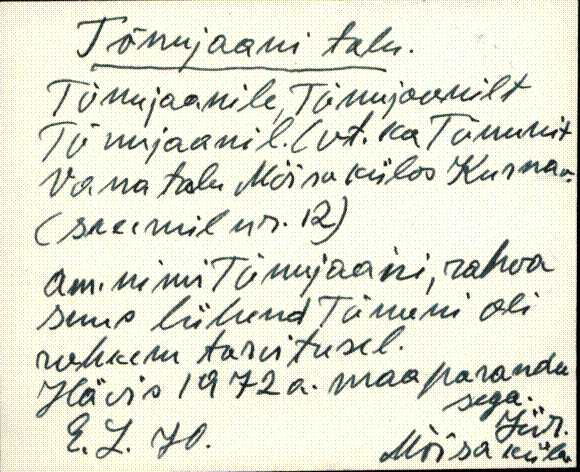 Tõnujaani talu.
Tõnujaanile, Tõnujaanilt
Tõnujaanil. (vt. ka Tõnunit
Vana talu Mõisakülas Kurna
(skeemil nr. 12)
am. nimi Tõnujaani, rahva
suus lühend Tõnuni oli
rohkem tarvitusel.
Hävis 1972 a. maaparandu
sega.
E. J. 70. Jür.
Mõisaküla